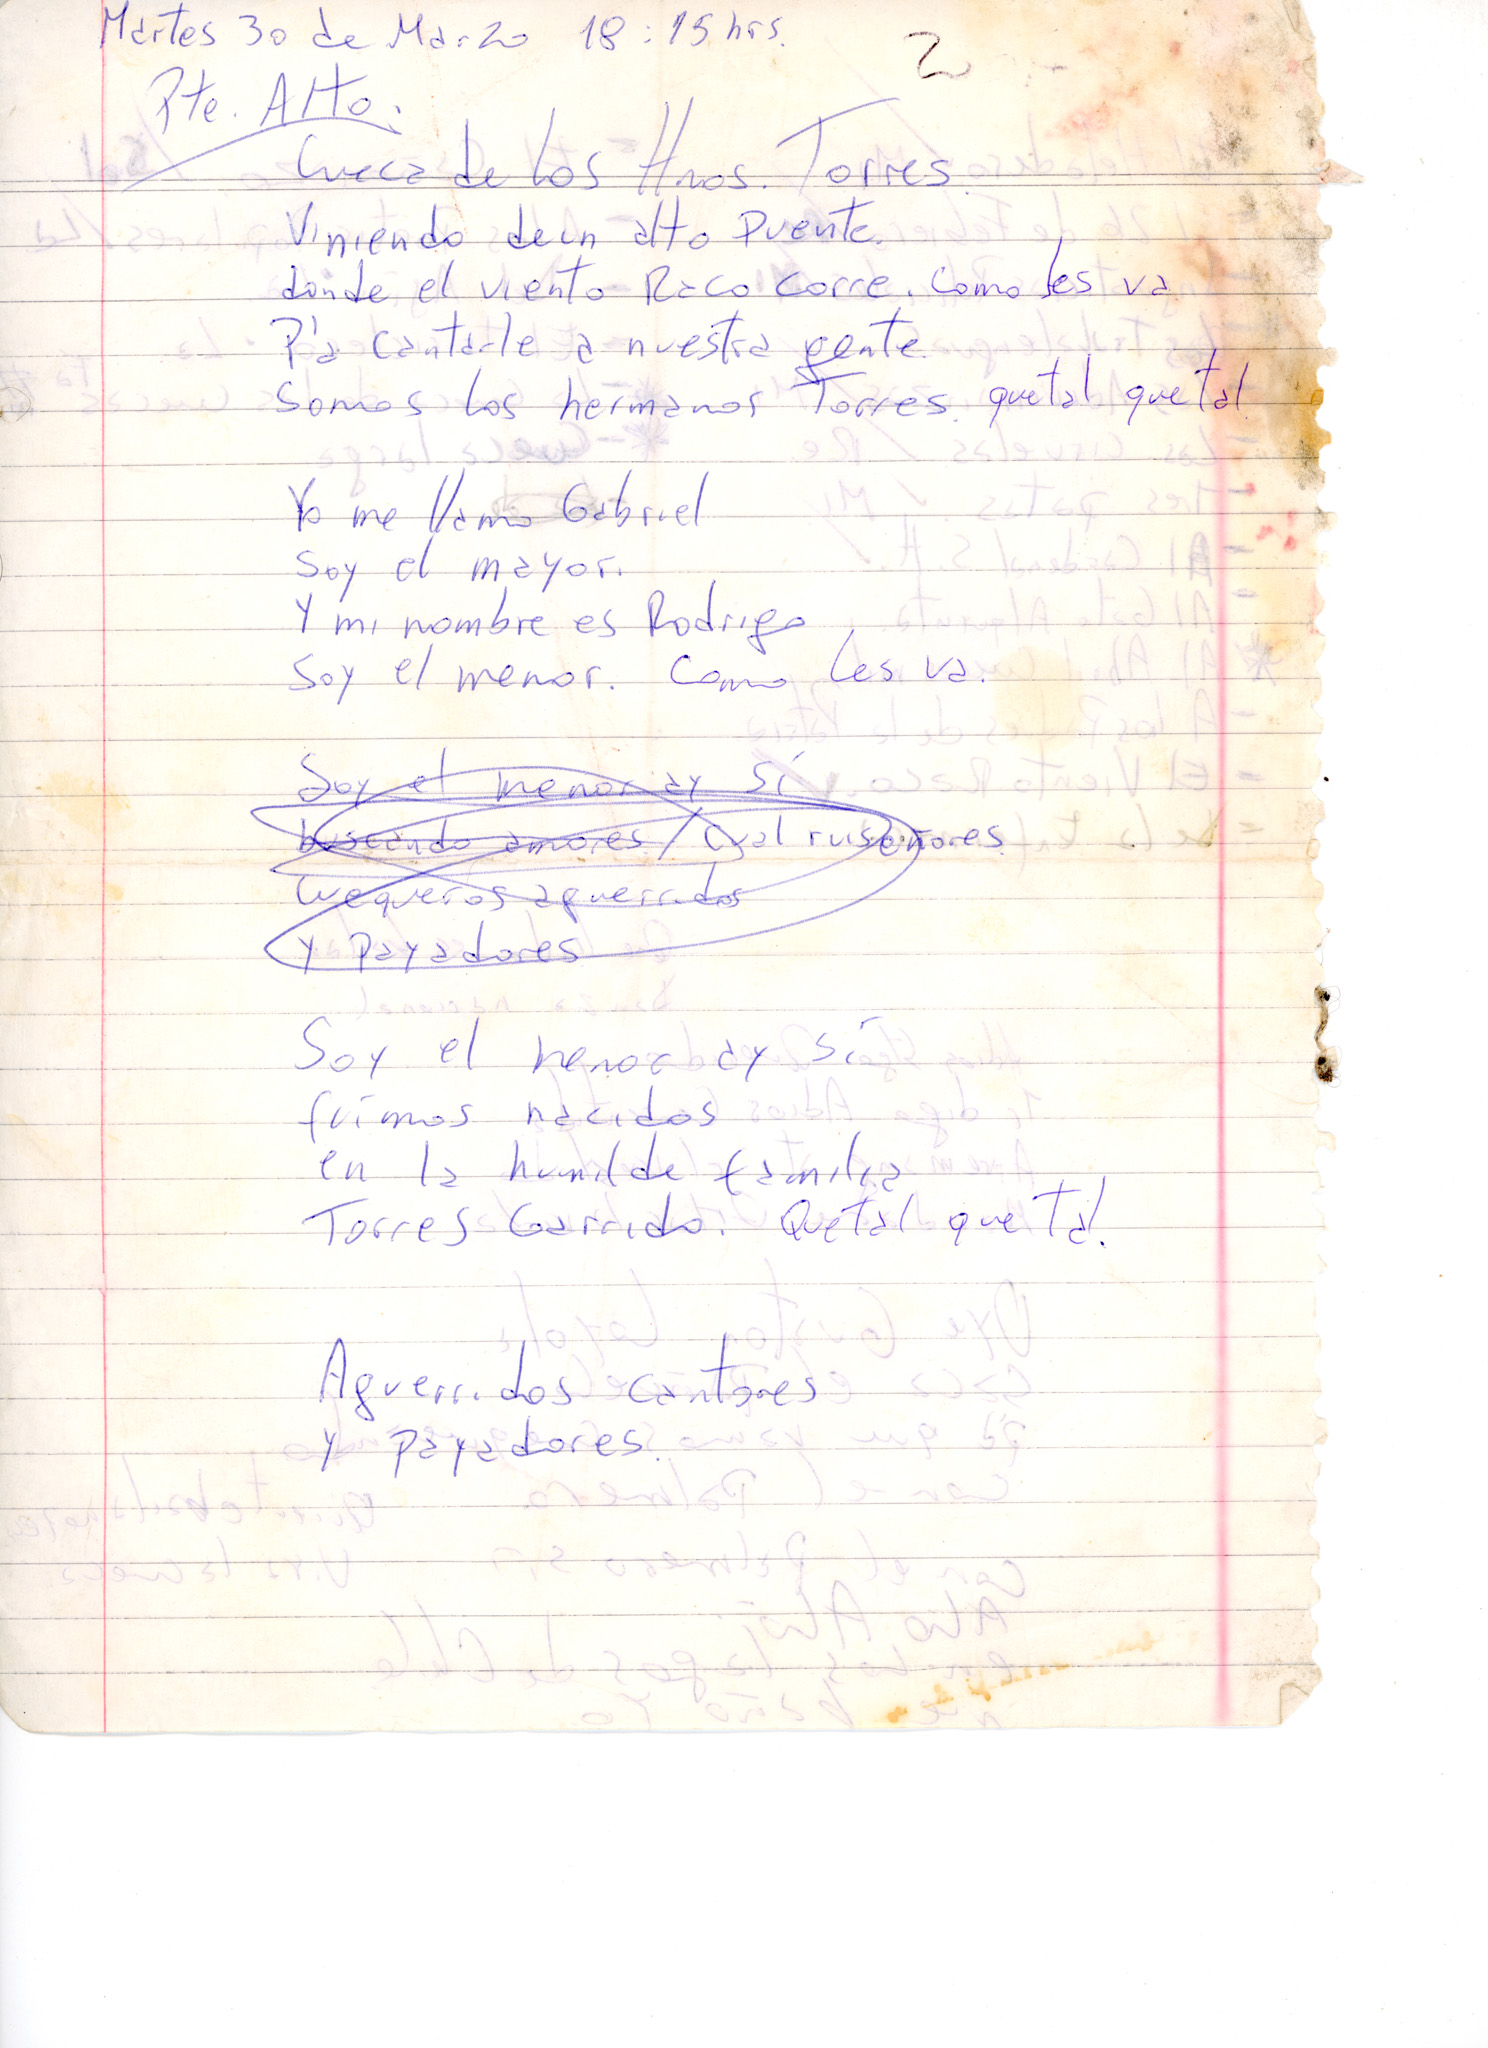 Martes 30 de Marzo 18:15 hrs.
2
Pte. Alto.
Cueca de Los Hnos. Torres.
Viniendo de un alto Puente.
donde el viento Raco corre. Como les va
P'a cantarle a nuestra gente.
Somos los hermanos Torres. que tal que tal
Yo me llamo Gabriel
Soy el mayor.
Y mi nombre es Rodrigo
Soy el menor. Como les va.
Soy el menor ay sí
buscando amores / cual ruiseñores
Cuequeros aguerridos
y payadores
Soy el menor ay sí
fuimos nacidos
en la humilde familia
Torres Garrido. Que tal que tal.
Aguerridos cantores
y payadores.